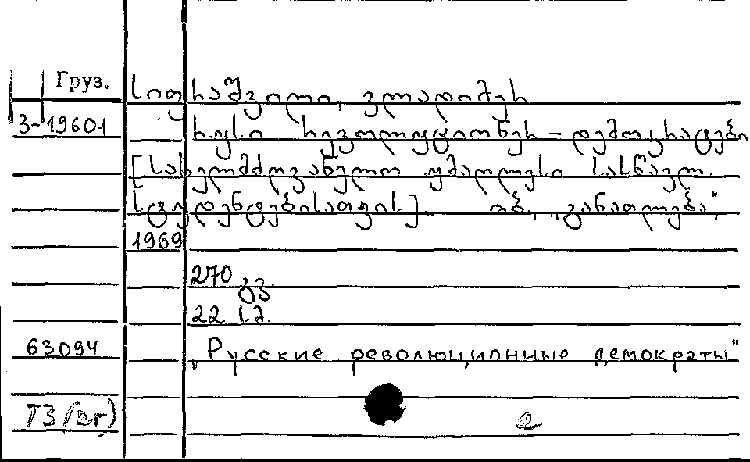 Груз.
სიფრაშვილი, ვლადიმერ
3-19601 რუსი რევოლუციონერ-დემოკრატები
[სახელმძღვანელო უმაღლესი სასწავლ.
სტუდენტებისათვის] თბ. „განათლება",
1969
270 გვ.
22 სმ.
63094 „Русские революционные демократы"
T3(2г)